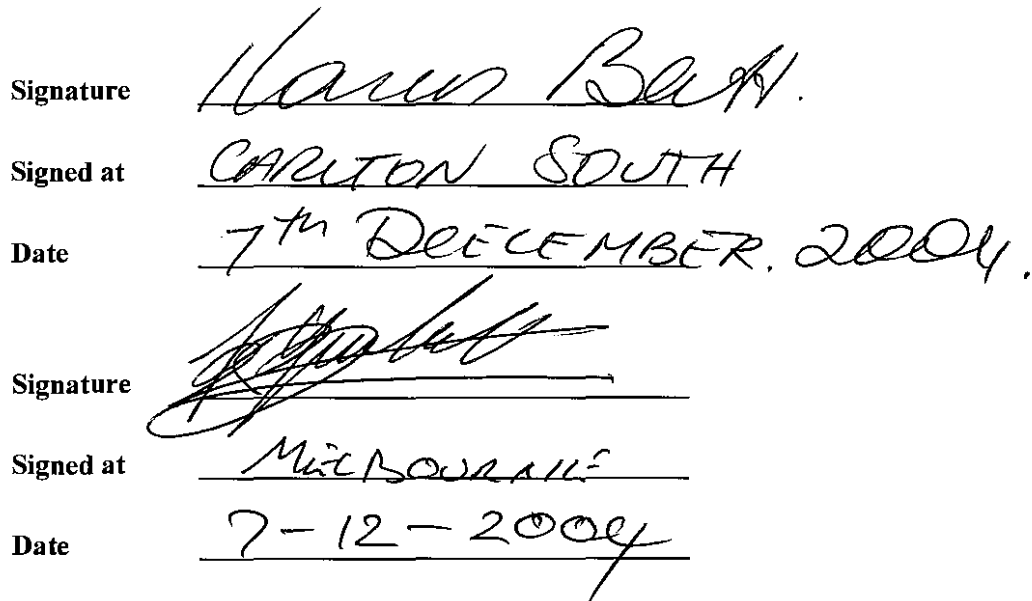 Signature Karen Batt.
Signed at CARLTON SOUTH
Date 7th DECEMBER. 2004.
Signature
Signed at MELBOURNE
Date 7-12-2004